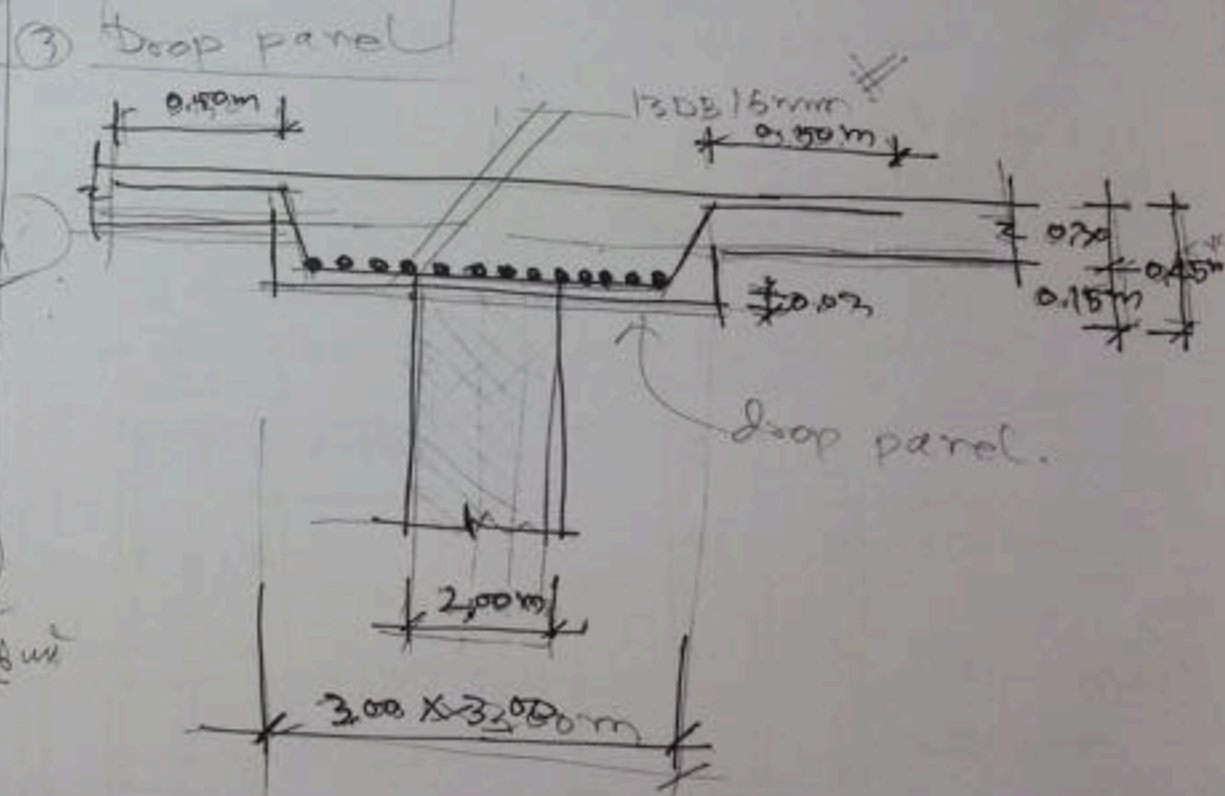 ③ Drop panel
0.50m
13DB16mm
0.50m
0.30
0.45m
0.15m
0.03
drop panel.
2.00m
3.00 X 3.00 m